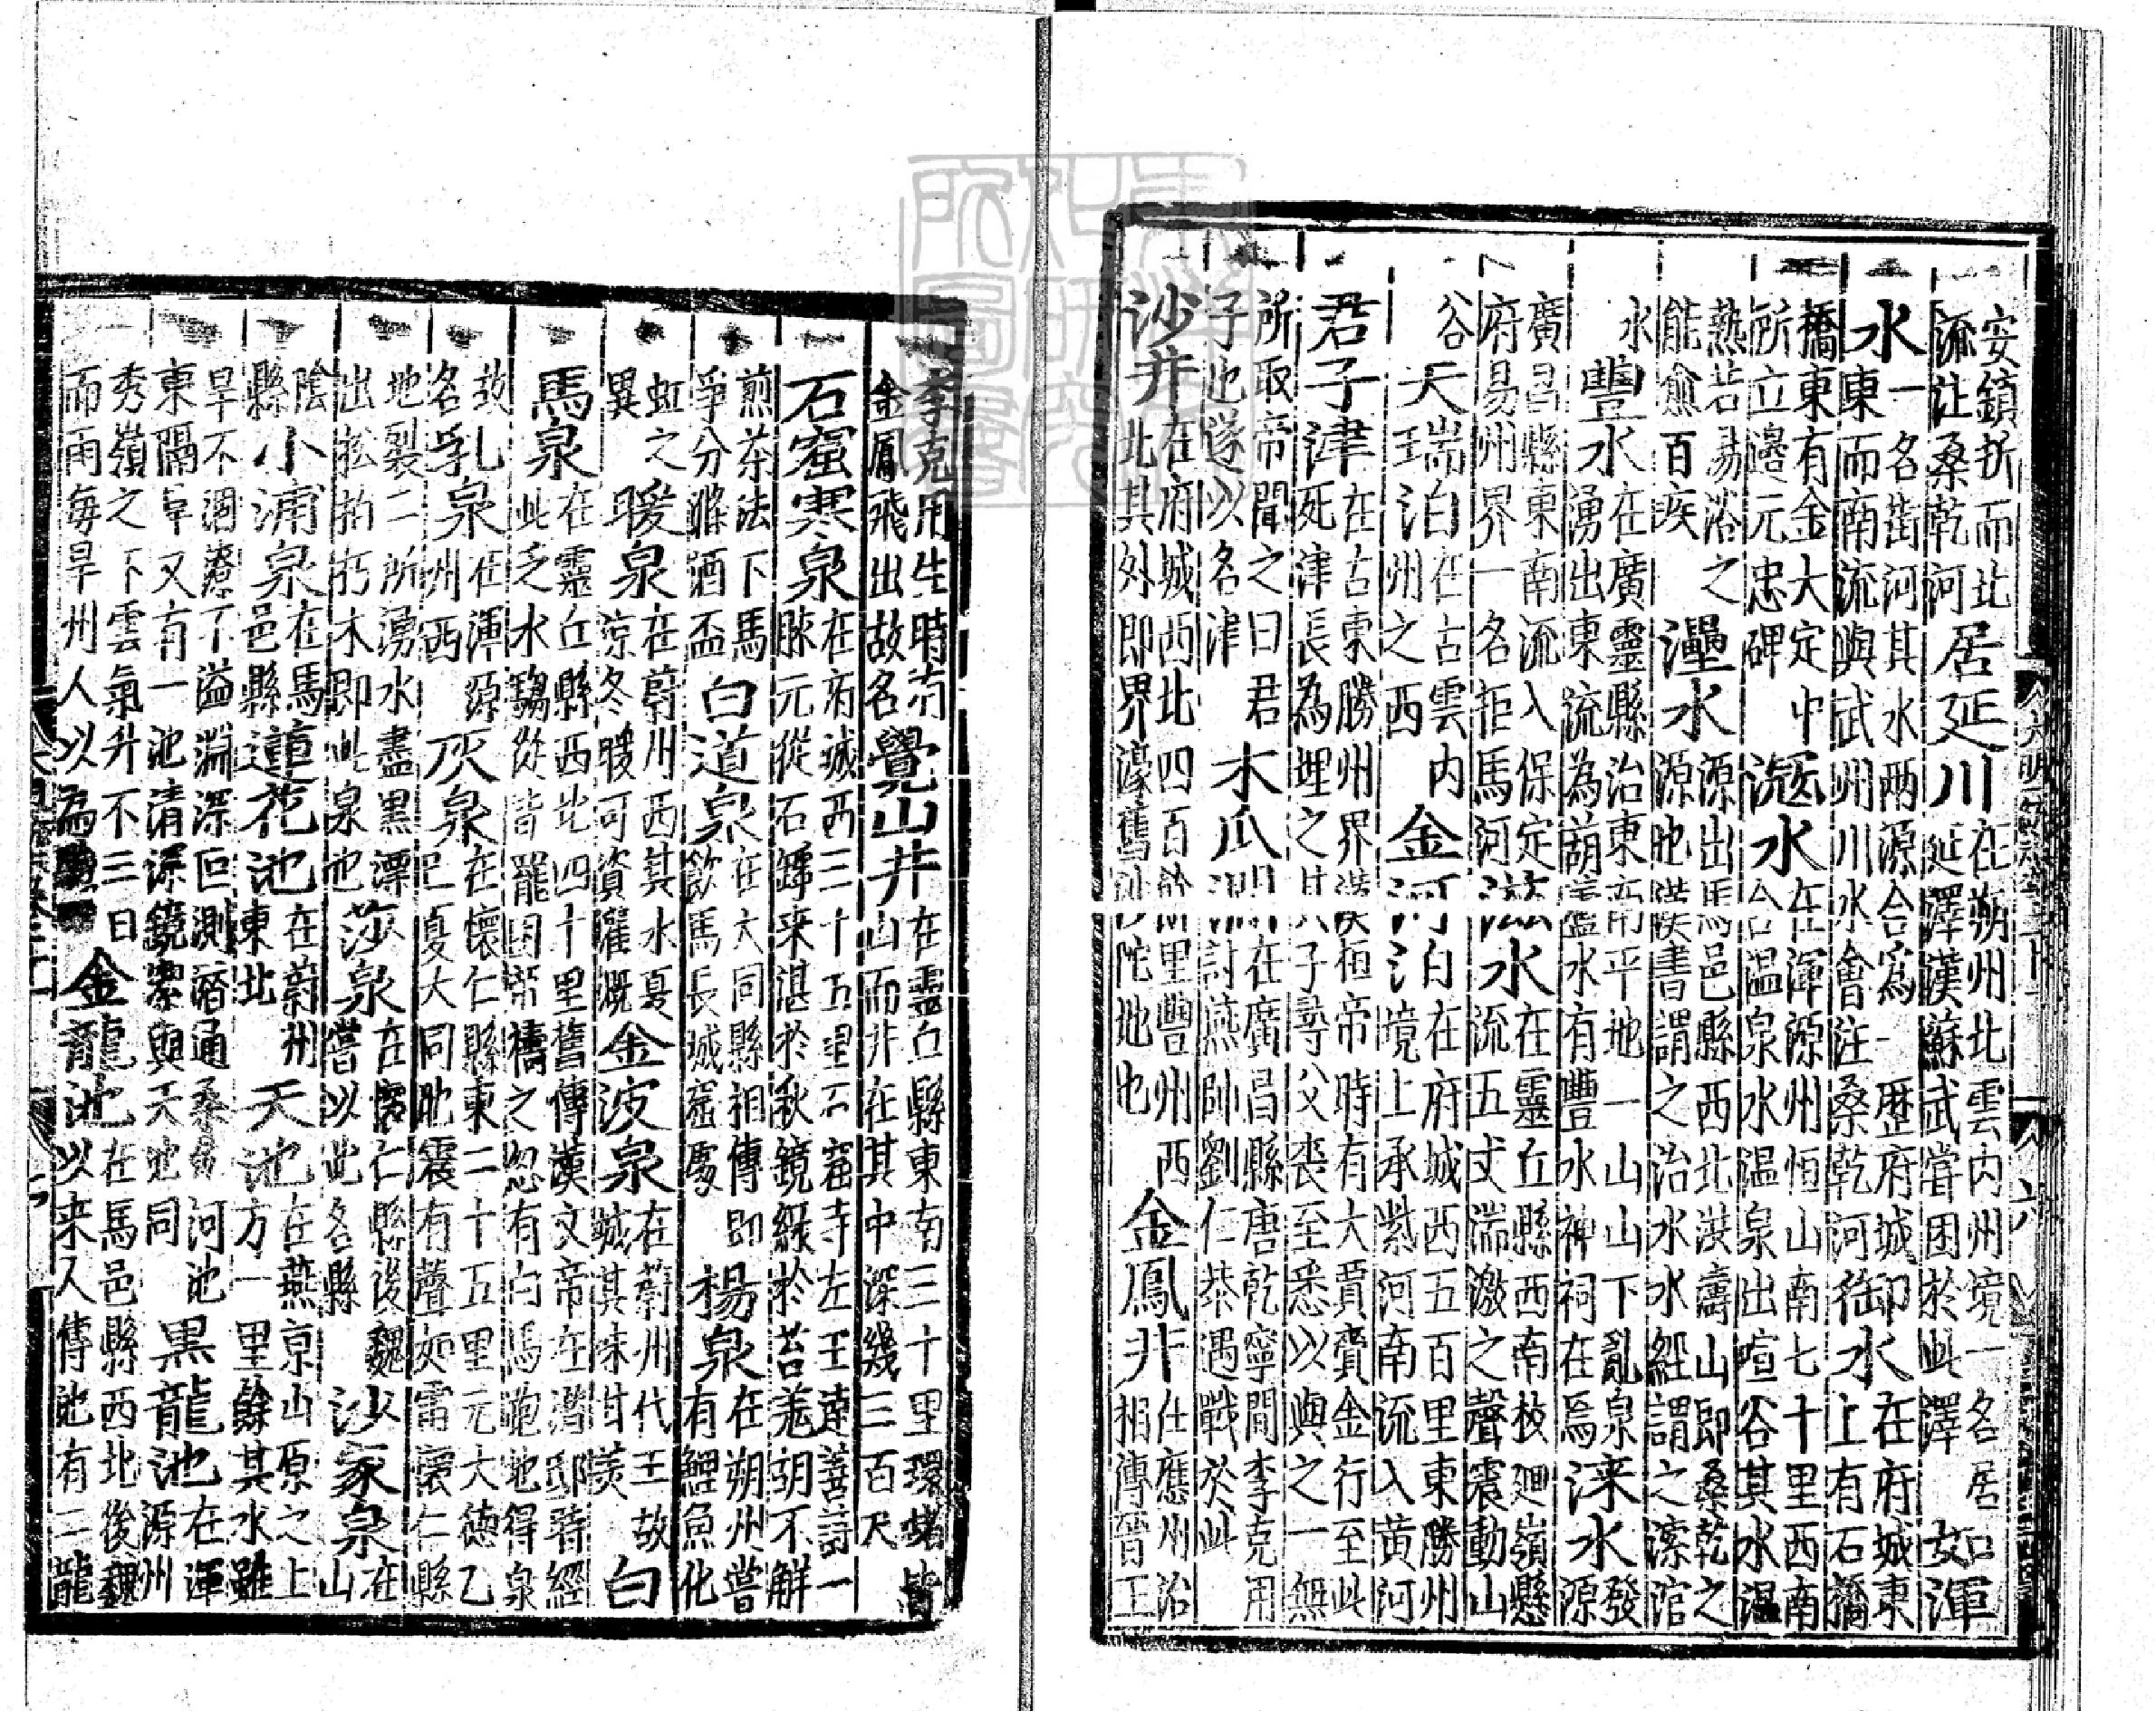 安鎮折而北
流注桑乾河
居延川
在朔州北雲内州境一名居
延延澤漢蘇武嘗困於此澤
如渾
水
東一名禦河其水兩源合為一歷府城
東而南流與武州川水會注桑乾河
御水
在府城東
上有石橋
橋東有金大定中
所立邊元忠碑
溫水
在渾源州恒山南七十里西南
谷溫泉水溫泉出喧谷其水溫
熱若易浴之
能愈百疾
㶟水
源出馬邑縣西北洪濤山即桑乾之
源也漢書謂之治水水經謂之㶟涫
水
豐水
在廣靈縣治東南平地一山山下亂泉
湧出東流為葫蘆水有豐水神祠在焉
淶水
發源
廣昌縣東南流入保定
府易州界一名拒馬河
滋水
在靈丘縣西南枚廻嶺懸
流五丈湍激之聲震動山
谷
天瑞泊
在古雲内
州之西
金河泊
在府城西五百里東勝州
境上承紫河南流入黄河
君子津
在古東勝州界漢桓帝時有大賈賫金行至此
死津長為埋之其子尋父喪至悉以與之一無
所取帝聞之曰君
子也遂以名津
木瓜澗
在廣昌縣唐乾寧間李克用
討燕帥劉仁恭遇戰於此
沙井
在府城西北四百餘里豐州西
北其外即界濠舊沙陀地也
金鳳井
在應州治
相傳晉王
李克用生時有
金鳳飛出故名
覺山井
在靈丘縣東南三十里環堵皆
山而井在其中深幾三百尺
石窟寒泉
在府城西三十五里石窟寺左王達善詩一
脉元從石罅来湛於秋鏡綠於苔羗胡不解
煎茶法下馬
爭分滌酒盃
白道泉
在大同縣相傳即
飲馬長城窟處
楊泉
在朔州嘗
有鯉魚化
虹之
異
暖泉
在蔚州西其水夏
涼冬暖可資灌溉
金波泉
在蔚州代王故
城其味甘美
白
馬泉
在靈丘縣西北四十里舊傳漢文帝在潛邸時經
此乏水騶從皆罷困帝禱之忽有白馬跑地得泉
故
名
乳泉
在渾源
州西
灰泉
在懷仁縣東二十五里元大德乙
巳夏大同地震有聲如雷懷仁縣
地裂二所湧水盡黒漂
出松栢朽木即此泉也
莎泉
在懷仁縣後魏以
嘗以此名縣
沙家泉
在
山
陰
縣
小浦泉
在馬
邑縣
蓮花池
在蔚州
東北
天池
在燕京山原之上
方一里餘其水雖
旱不涸澇不溢淵深叵測潛通桑乾河池
東隔阜又有一池清深鏡潔與天池同
黒龍池
在渾
源州
秀嶺之下雲氣升不三日
而雨每旱州人以為
金龍池
在馬邑縣西北後魏
以来人傳池有二龍